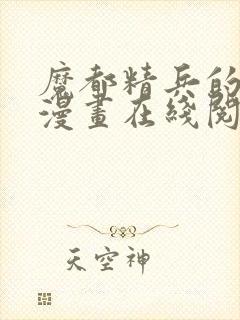 魔都精兵的
漫畫在綫閱
天空神